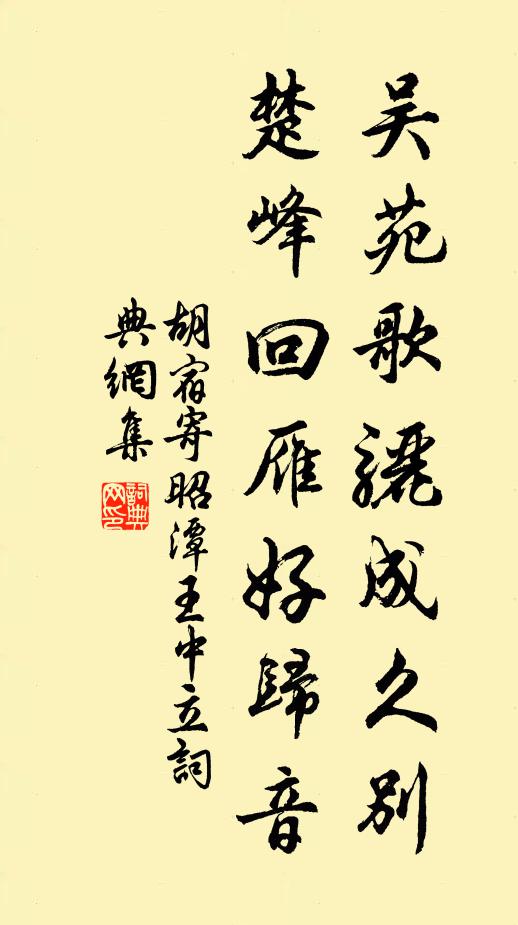 吴苑歌骊成久别
楚峰回雁好歸音
胡宿寄昭潭王中立詞
典網集
詞典网印